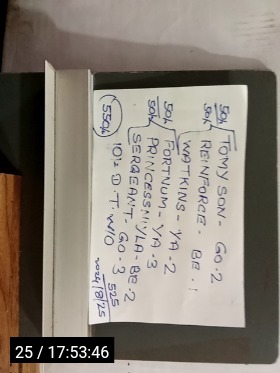 50k TOMYSON - GO.2
50k REINFORCE - BE.1
WATKINS - YA-2
50k FORTNUM - YA-3
50k PRINCESSNIYLA - BE.2
SERGEANT - GO-3
550k 10's D.T. W/O 525
25 / 17:53:46